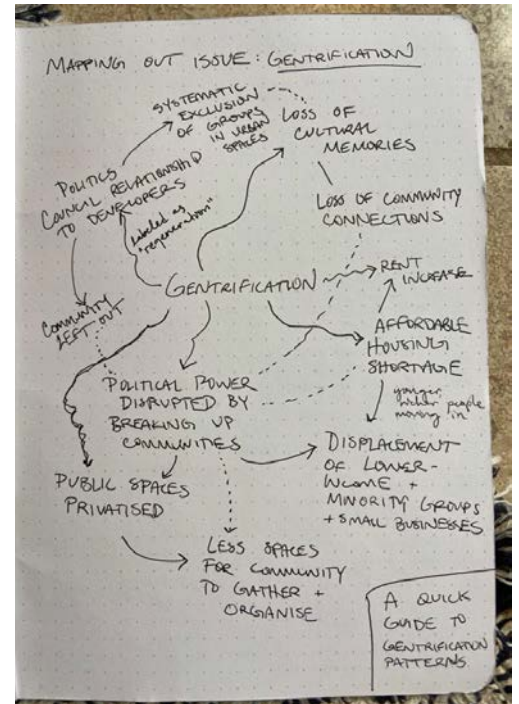 MAPPING OUT ISSUE: GENTRIFICATION
SYSTEMATIC
EXCLUSION
OF GROUPS
IN URBAN
SPACES
LOSS OF
CULTURAL
MEMORIES
POLITICS
COUNCIL RELATIONSHIP
TO DEVELOPERS
labeled as
"regeneration"
LOSS OF COMMUNITY
CONNECTIONS
GENTRIFICATION
RENT
INCREASE
COMMUNITY
LEFT OUT
AFFORDABLE
HOUSING
SHORTAGE
younger
richer people
moving in
POLITICAL POWER
DISRUPTED BY
BREAKING UP
COMMUNITIES
DISPLACEMENT
OF LOWER-
INCOME +
MINORITY GROUPS
+ SMALL BUSINESSES
PUBLIC SPACES
PRIVATISED
LESS SPACES
FOR COMMUNITY
TO GATHER +
ORGANISE
A QUICK
GUIDE TO
GENTRIFICATION
PATTERNS